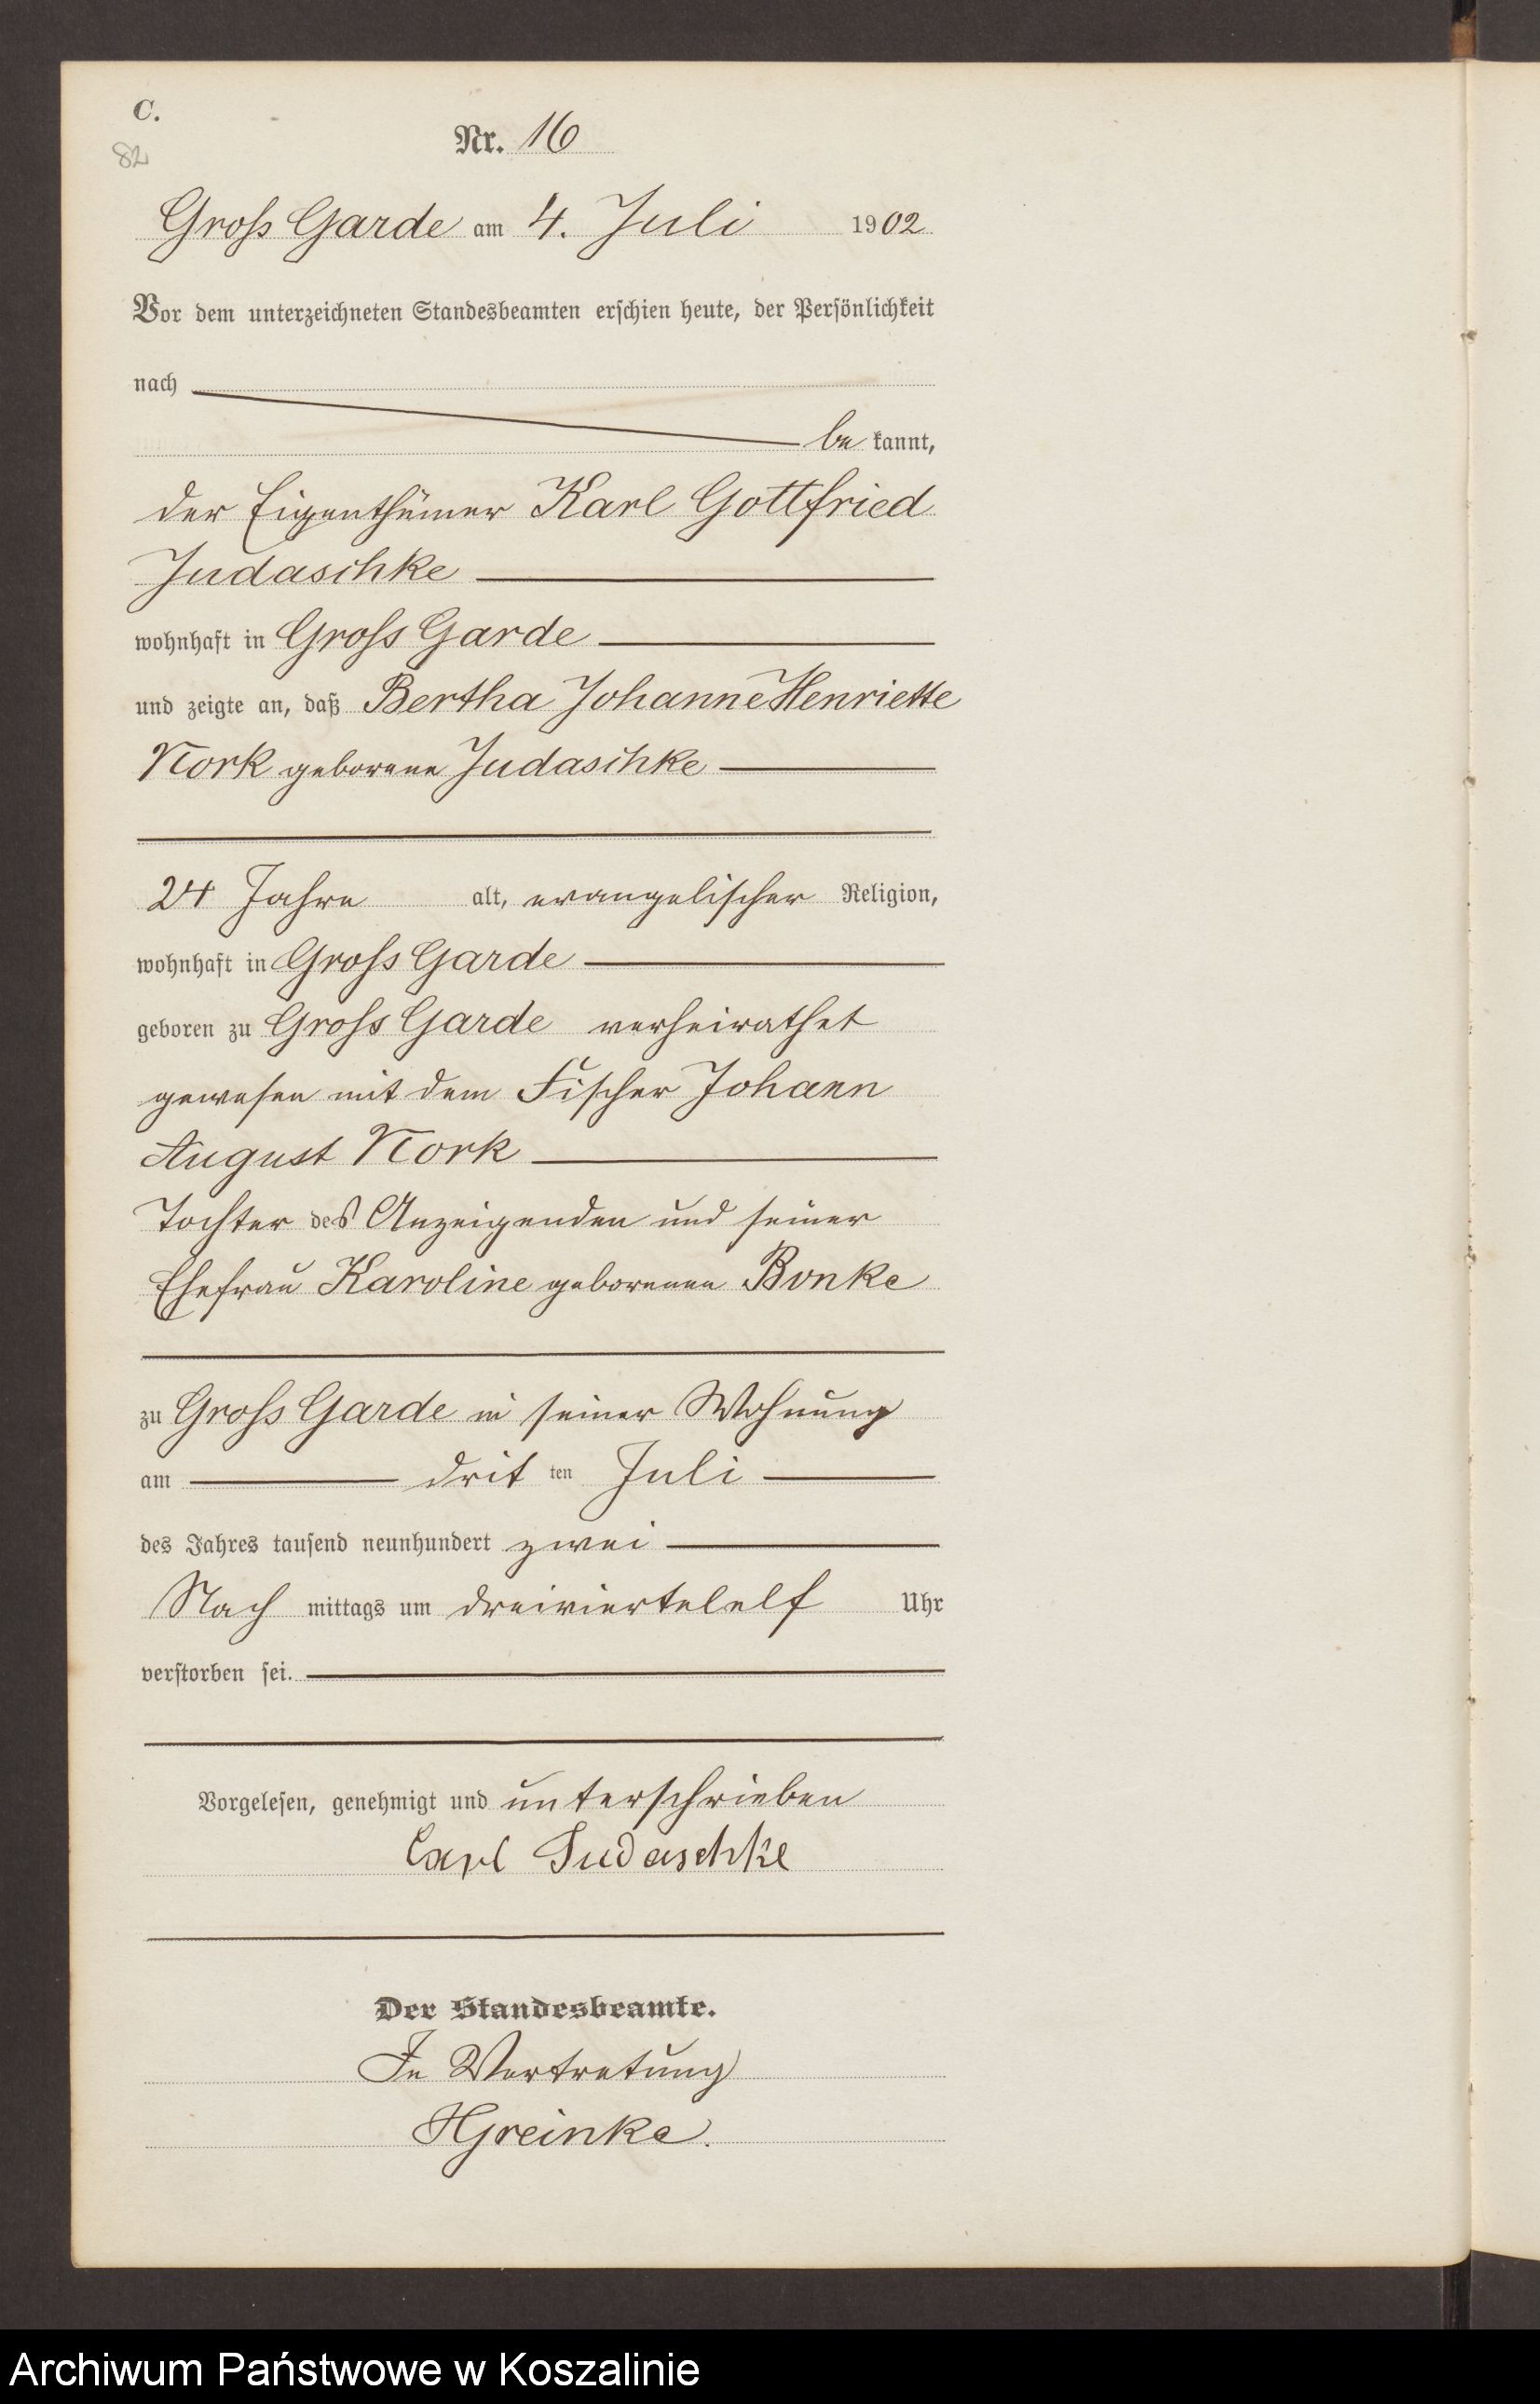 C.
82
Nr. 16
Gross Garde am 4. Juli 1902
Vor dem unterzeichneten Standesbeamten erschien heute, der Persönlichkeit
nach
be kannt,
der Eigenthümer Karl Gottfried
Judaschke
wohnhaft in Gross Garde
und zeigte an, daß Bertha Johanne Henriette
Nork geborene Judaschke
24 Jahre alt, evangelischer Religion,
wohnhaft in Gross Garde
geboren zu Gross Garde verheirathet
gewesen mit dem Fischer Johann
August Nork
Tochter des Anzeigenden und seiner
Ehefrau Karoline geborenen Bonke
zu Gross Garde in seiner Wohnung
am drit ten Juli
des Jahres tausend neunhundert zwei
Nach mittags um dreiviertelelf Uhr
verstorben sei.
Vorgelesen, genehmigt und unterschrieben
Carl Judaschke
Der Standesbeamte.
In Vertretung
HGreinke.
Archiwum Państwowe w Koszalinie